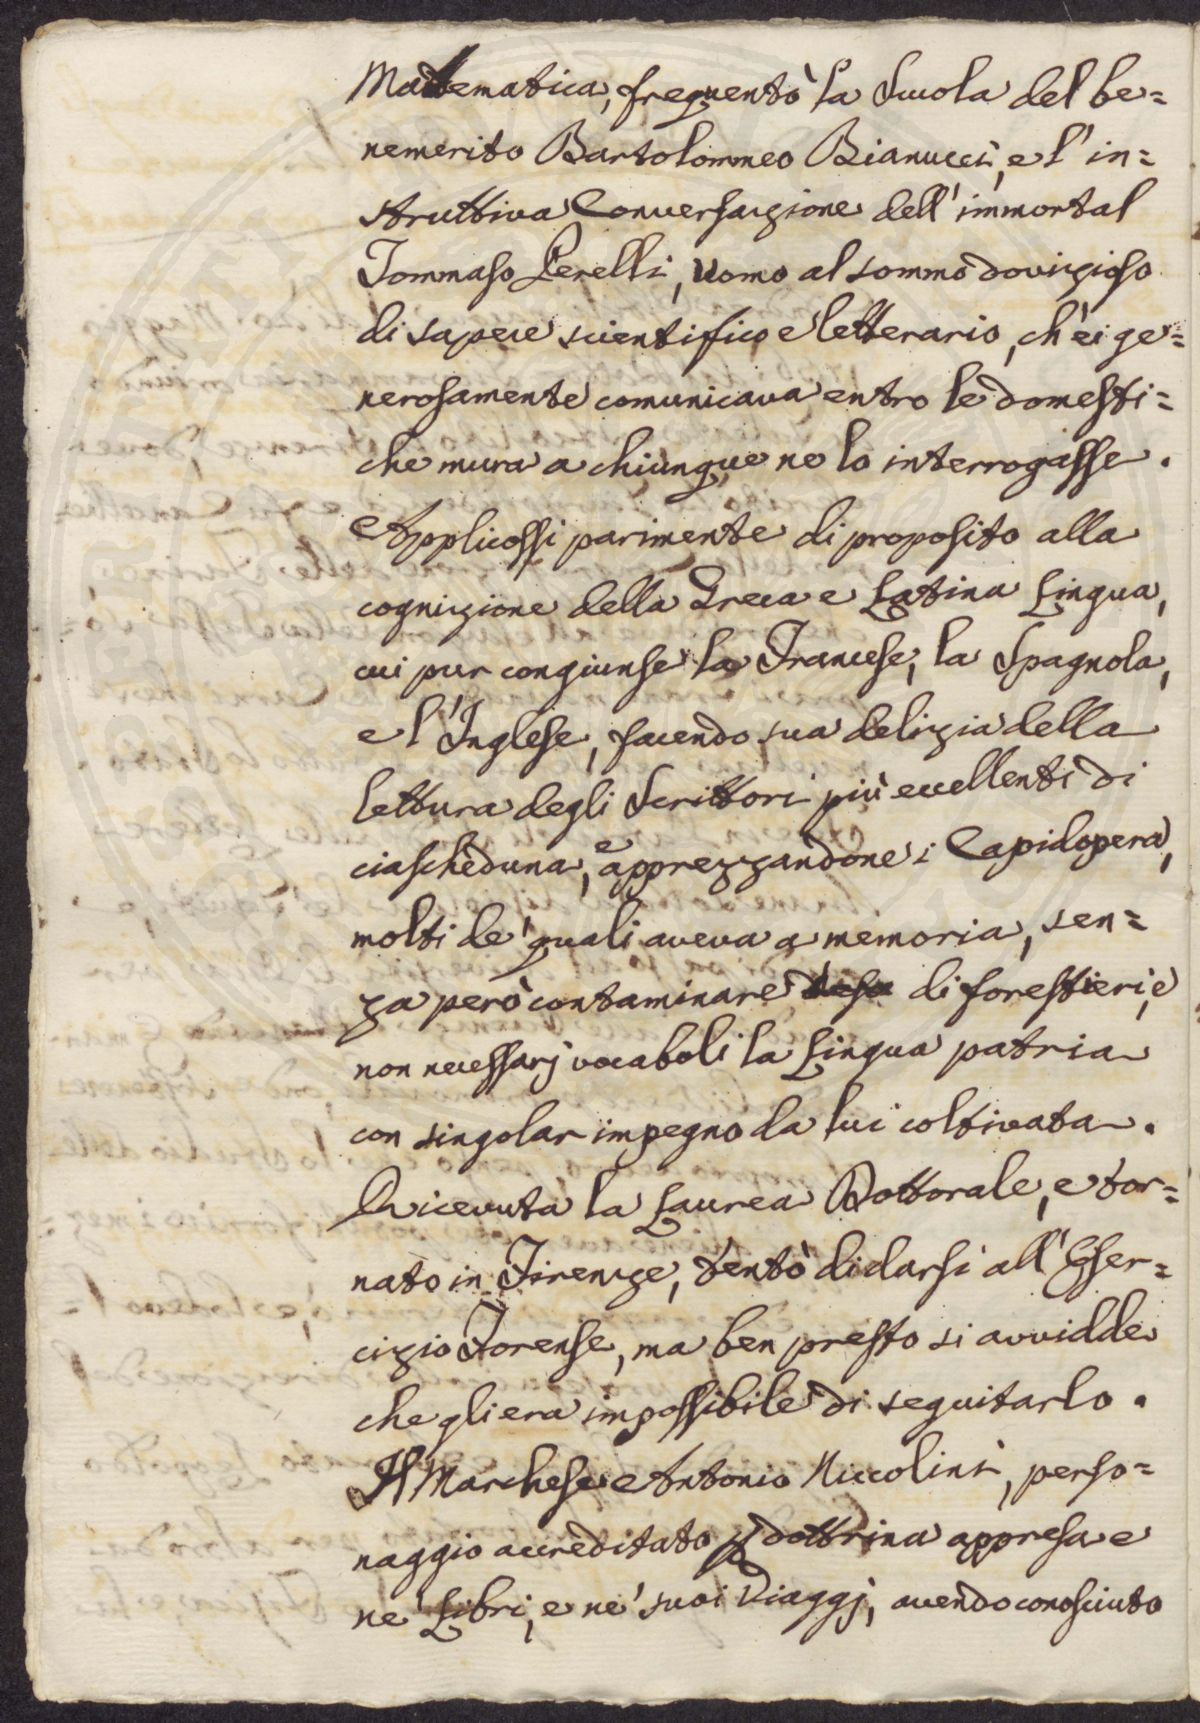 Mattematica, frequentò la Scuola del be=
nemerito Bartolommeo Bianucci, e l'in=
struttiva Conversazione dell'immortal
Tommaso Perelli, Uomo al sommo dovizioso
di sapere scientifico e letterario, ch'ei ge=
nerosamente comunicava entro le domesti=
che mura a chiunque ne lo interrogasse.
Applicossi parimente di proposito alla
cognizione della Greca e Latina Lingua,
cui pur congiunse la Francese, la Spagnola,
e l'Inglese, facendo sua delizia della
lettura degli Scrittori più eccellenti di
ciascheduna, e apprezzandone i Capidopera,
molti de' quali aveva a memoria, sen=
za però contaminare di forestieri, e
non necessarj vocaboli la Lingua patria
con singolar impegno da lui coltivata.
Ricevuta la Laurea Dottorale, e tor=
nato in Firenze, tentò di darsi all'Eser=
cizio Forense, ma ben presto si avvidde
che gli era impossibile di seguitarlo.
Il Marchese Antonio Niccolini, perso=
naggio accreditato p dottrina appresa e
ne' Libri, e ne' suoi Viaggj, avendo conosciuto